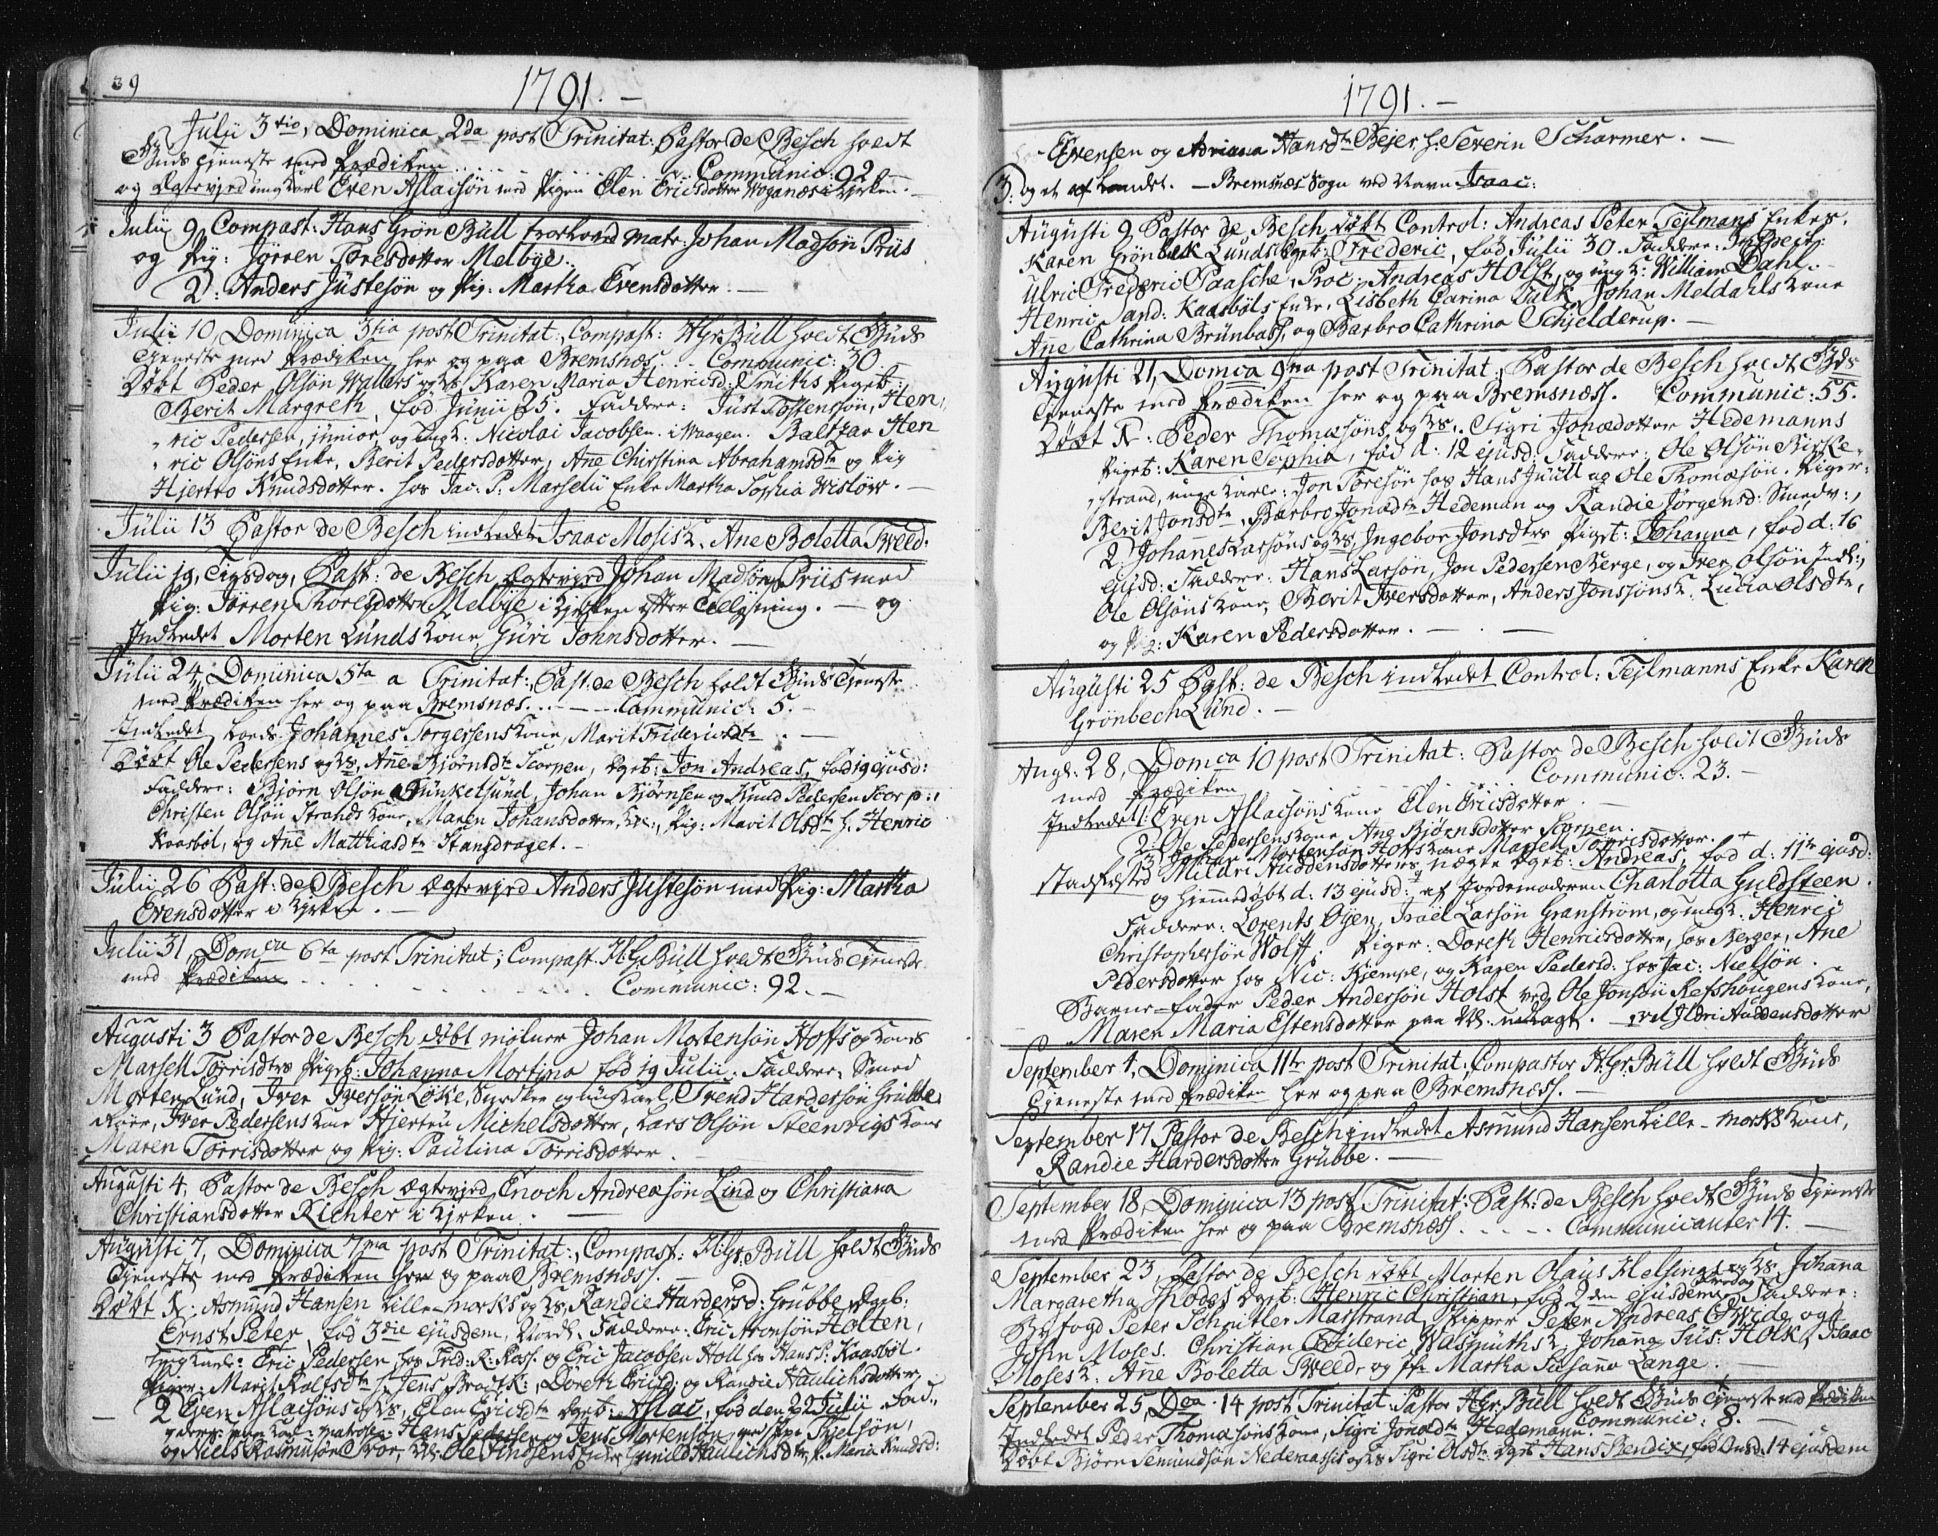 39
1791. —
Julii 3tio, Dominica 2da post Trinitat: Pastor de Besch holdt
Guds Tjeneste med Prædiken . . . Communic: 92
og Ægtevied ungkarl Even Aslacsøn med Pigen Elen Ericsdotter i Kirken. —
Julii 9, Compast: Hans Grøn Büll trolovid matr: Johan Madsøn Prüs
og Pig: Jørren Toresdotter Melbye.
2. Anders Justesøn og Pig: Martha Evensdotter. —
Julii 10, Dominica 3tia post Trinitat:, Compast: H.Gr: Büll holdt Guds
Tjeneste med Prædiken her og paa Bremsnæs. . . Communic: 30
Døbt Peder Olsøn Wallers og Karen Maria Henricsd: Smiths Piget:
Berit Margreth, fød Junii 25. Faddere: Just Tostensøn, Hen
ric Pedersen, junior, og ungk: Nicolai Jacobsen i Waagen. Baltzar Hen
ric Olsøns Enke, Berit Pedersdotter, Ane Christina Abrahamsdtr og Pig
Hjertro Knudsdotter. hos Jac: P: Marselii Enke Martha Sophia Wisløw. —
Julii 13 Pastor de Besch indledet Isaac Mosis k. Ane Boletta Tweed.
Julii 19, Tiisdag, Past: de Besch Ægtevied Johan Madsøn Prüs med
Pig: Jørren Thoresdotter Melbye i Kirken efter Tillysning. — og
Indledet Morten Lunds Kone Guri Johnsdotter. —
Julii 24, Dominica 5ta a Trinitat:, Past: de Besch holdt Guds Tjeneste
med Prædiken her og paa Bremsnæs. . — Communic: 5. —
Indledet Johannes Torgersens Kone, Marit Fridericdtr. —
Døbt Ole Pedersens og Ks, Ane Bjørnsdtr Scorpen, Dget: Jon Andreas, fød 19 ejusd:
Faddere: Bjørn Olsøn Dünkelsund, Johan Bjørnsen og Knud Pedersen Scorp:,
Christen Olsøn Strands Kone, Maren Johansdotter, Pig: Marit Olsdtr h. Henric
Kaasbøl, og Ane Matthiasdtr Stangdraget. —
Julii 26 Past: de Besch Ægtevied Anders Justesøn med Pig: Martha
Evensdotter i Kirken. —
Julii 31, Domca 6ta post Trinitat; Compast. H.G: Büll holdt Guds Tjeneste
med Prædiken . . . . . Communic: 92. —
Augusti 3 Pastor de Besch døbt mølner Johan Mortensøn Hoffs og Kones
Marsell Torrisdtrs Piget: Johanna Mortina fød 19 Julii. Faddere: Smed
Morten Lund, Iver Iversøn Løke, Snedker og Ungkarl, Trend Hardersøn Grubbe
Iver Pedersens Kone Hjertru Michelsdotter, Lars Olsøn Steenvigs Kone
Maren Torrisdotter og Pig: Paulina Torrisdotter. —
Augusti 4, Pastor de Besch Ægtevied Enoch Andreasøn Lind og Christiana
Christiansdotter Richter i Kirken. —
Augusti 7, Dominica 7ma post Trinitat:, Compast: H.Gr: Büll holdt Guds
Tjeneste med Prædiken her og paa Bremsnæss. —
Døbt N: Asmund Hansen Lille-morks og Ks, Randie Hardersd: Grubbe, Dget:
Ernst Peter, fød 3die ejusdem, Faddere: Eric Aronsøn Holten,
Ungkarle: Eric Pedersen hos Frid: R: Ross. og Eric Jacobsen Holl hos Hans P: Kaasbøl.
Piger: Marit Rolfsdtr, Jens Brodtk:, Doreth Ericsd: og Randie Haulichsdotter,
2 Even Aslacsøns og Ks, Elen Ericsdtr Dget: Aslac, fød den 22 Julii Fad.,
Hans Pedersen og Jens Mortensøn, Skjelsøn,
og Niels Rasmusøn Ole Findsens Enke Gunild Haulichsdtr, P. Maria Knudsd:
1791. —
Evensen og Adriana Hansdtr Bejer, h: Severin Scharmer. —
3. og et af Landet. — Bremsnæs Sogn ved Navn Isaac:
Augusti 9 Pastor de Besch døbt Control: Andreas Peter Tejlmans Enkes,
Karen Grønbek Lunds Dget: Frederic, fød Julii 30. Faddere: Inspect:
Ulric Frederic Paasche, Proc: Andreas Holst, og ungk: William Dahl.
Henric Sand: Kaasbøls Enke, Lisbeth Carina Falk, Johan Meldahls Kone
Ane Cathrina Brünbass, og Barbro Cathrina Schjelderup. —
Augusti 21, Domca 9na post Trinitat:, Pastor de Besch holdt Gds
Tjeneste med Prædiken her og paa Bremsnæss. Communic: 55.
Døbt N: Peder Thomasøns og Ks. Sigri Jonædotter Hedemanns
Piget: Karen Sophia, fød d: 12 ejusd: Faddere: Ole Olsøn Kirke-
strand, unge Karle: Jon Toresøn hos Hans Juüll og Ole Thomæsøn. Piger:
Berit Jonsdtr, Barbro Jonædtr Hedeman og Randie Jørgensd: Smedv:,
2 Johannes Larsøns og Ks, Ingebor Jonsdtrs Piget: Johanna, fød d: 16
ejusd: Faddere: Hans Larsøn, Jon Pedersen Berge, og Iver Olsøn
Ole Olsøns Kone, Berit Iversdotter, Anders Jonssøns k. Lucia Olsdtr,
og Pig: Karen Pedersdotter. —
Augusti 25 Past: de Besch indledet Control: Tejlmanns Enke Karen
Grønbech Lund. —
Aug: 28, Domca 10 post Trinitat: Pastor de Besch holdt Guds
med Prædiken . . . Communic: 23. —
Indledet: 1. Even Aslacsøns Kone Elen Ericsdotter
2 Ole Pedersens Kone Ane Bjørnsdotter Scorpen.
3 Johan Mortensøn Hoffs Kone Marsell Torrisdotter.
Stadfæsted Mildri Auddensdotters uægte Dget: Andreas, fød d: 11te ejusd:
og hjemmedøbt d. 13 ejusd: af Jordemoderen Charlotta Guldsteen.
Faddere: Lorents Oyen, Israel Larsøn Granstrøm, og ungk: Henric
Christophersøn Wolff. Piger: Doreth Henricsdotter, hos Berger, Ane
Pedersdotter hos Nic: Kjempe, og Karen Pedersd: hos Jac: Nielsøn.
Barne-Fader Peder Andersøn Holst ved Ole Jonsøn Refshougens Kone,
Maren Maria Estensdotter paa — ved Ildri Auddensdotter
September 4, Dominica 11te post Trinitat: Compastor H.Gr: Büll holdt Guds
Tjeneste med Prædiken her og paa Bremsnæss. —
September 17 Pastor de Besch indledet Asmund Hansen Lille-morks Kone,
Randie Hardersdotter Grubbe. —
September 18, Dominica 13 post Trinitat: Past: de Besch holdt Guds Tjeneste
med Prædiken her og paa Bremsnæss. . . . Communicanter 14. —
September 23, Pastor de Besch døbt Morten Olaus Helsings og Ks. Johanna
Margaretha Thodes Dget: Henric Christian, fød 2den ejusdem, Faddere:
Byfogd Peter Schnitler Matstrand, Skipper Peter Andreas Qwide og
John Moses. Christian Frideric Wasmuths k. Johanna Sus: Holk, Isaac
Moses k. Ane Boletta Tweed, og Martha Susanna Lange.
September 25, Dca 14 post Trinitat: Pastor H.Gr: Büll holdt Guds Tjeneste med Prædiken
Indledet Peder Thomasøns Kone, Sigri Jonædtr Hedemann. Communic: 8. —
Døbt Bjørn Semundsøn Nederaassis og Ks Sigri Olsdtr Dget Hans Bendix, fød 14 ejusdem